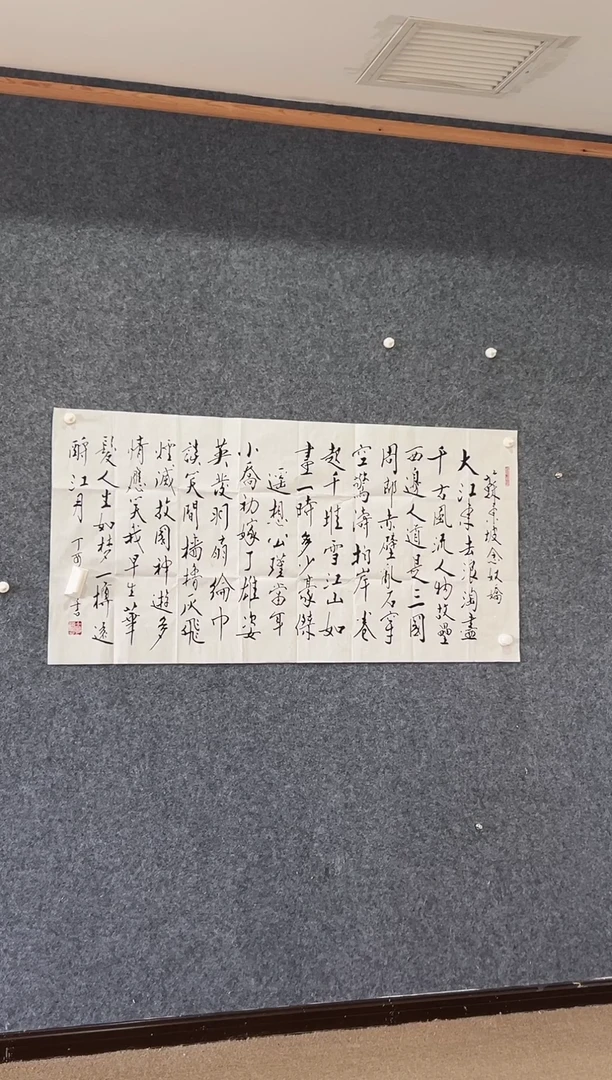 蘇東坡念奴嬌
大江東去浪淘盡
千古風流人物故壘
西邊人道是三國
周郎赤壁乱石穿
空驚濤拍岸卷
起千堆雪江山如
畫一時多少豪傑
遥想公瑾當年
小喬初嫁了雄姿
英發羽扇綸巾
談笑間檣櫓灰飛
煙滅故國神遊多
情應笑我早生華
髮人生如梦一樽還
酹江月 丁酉 書